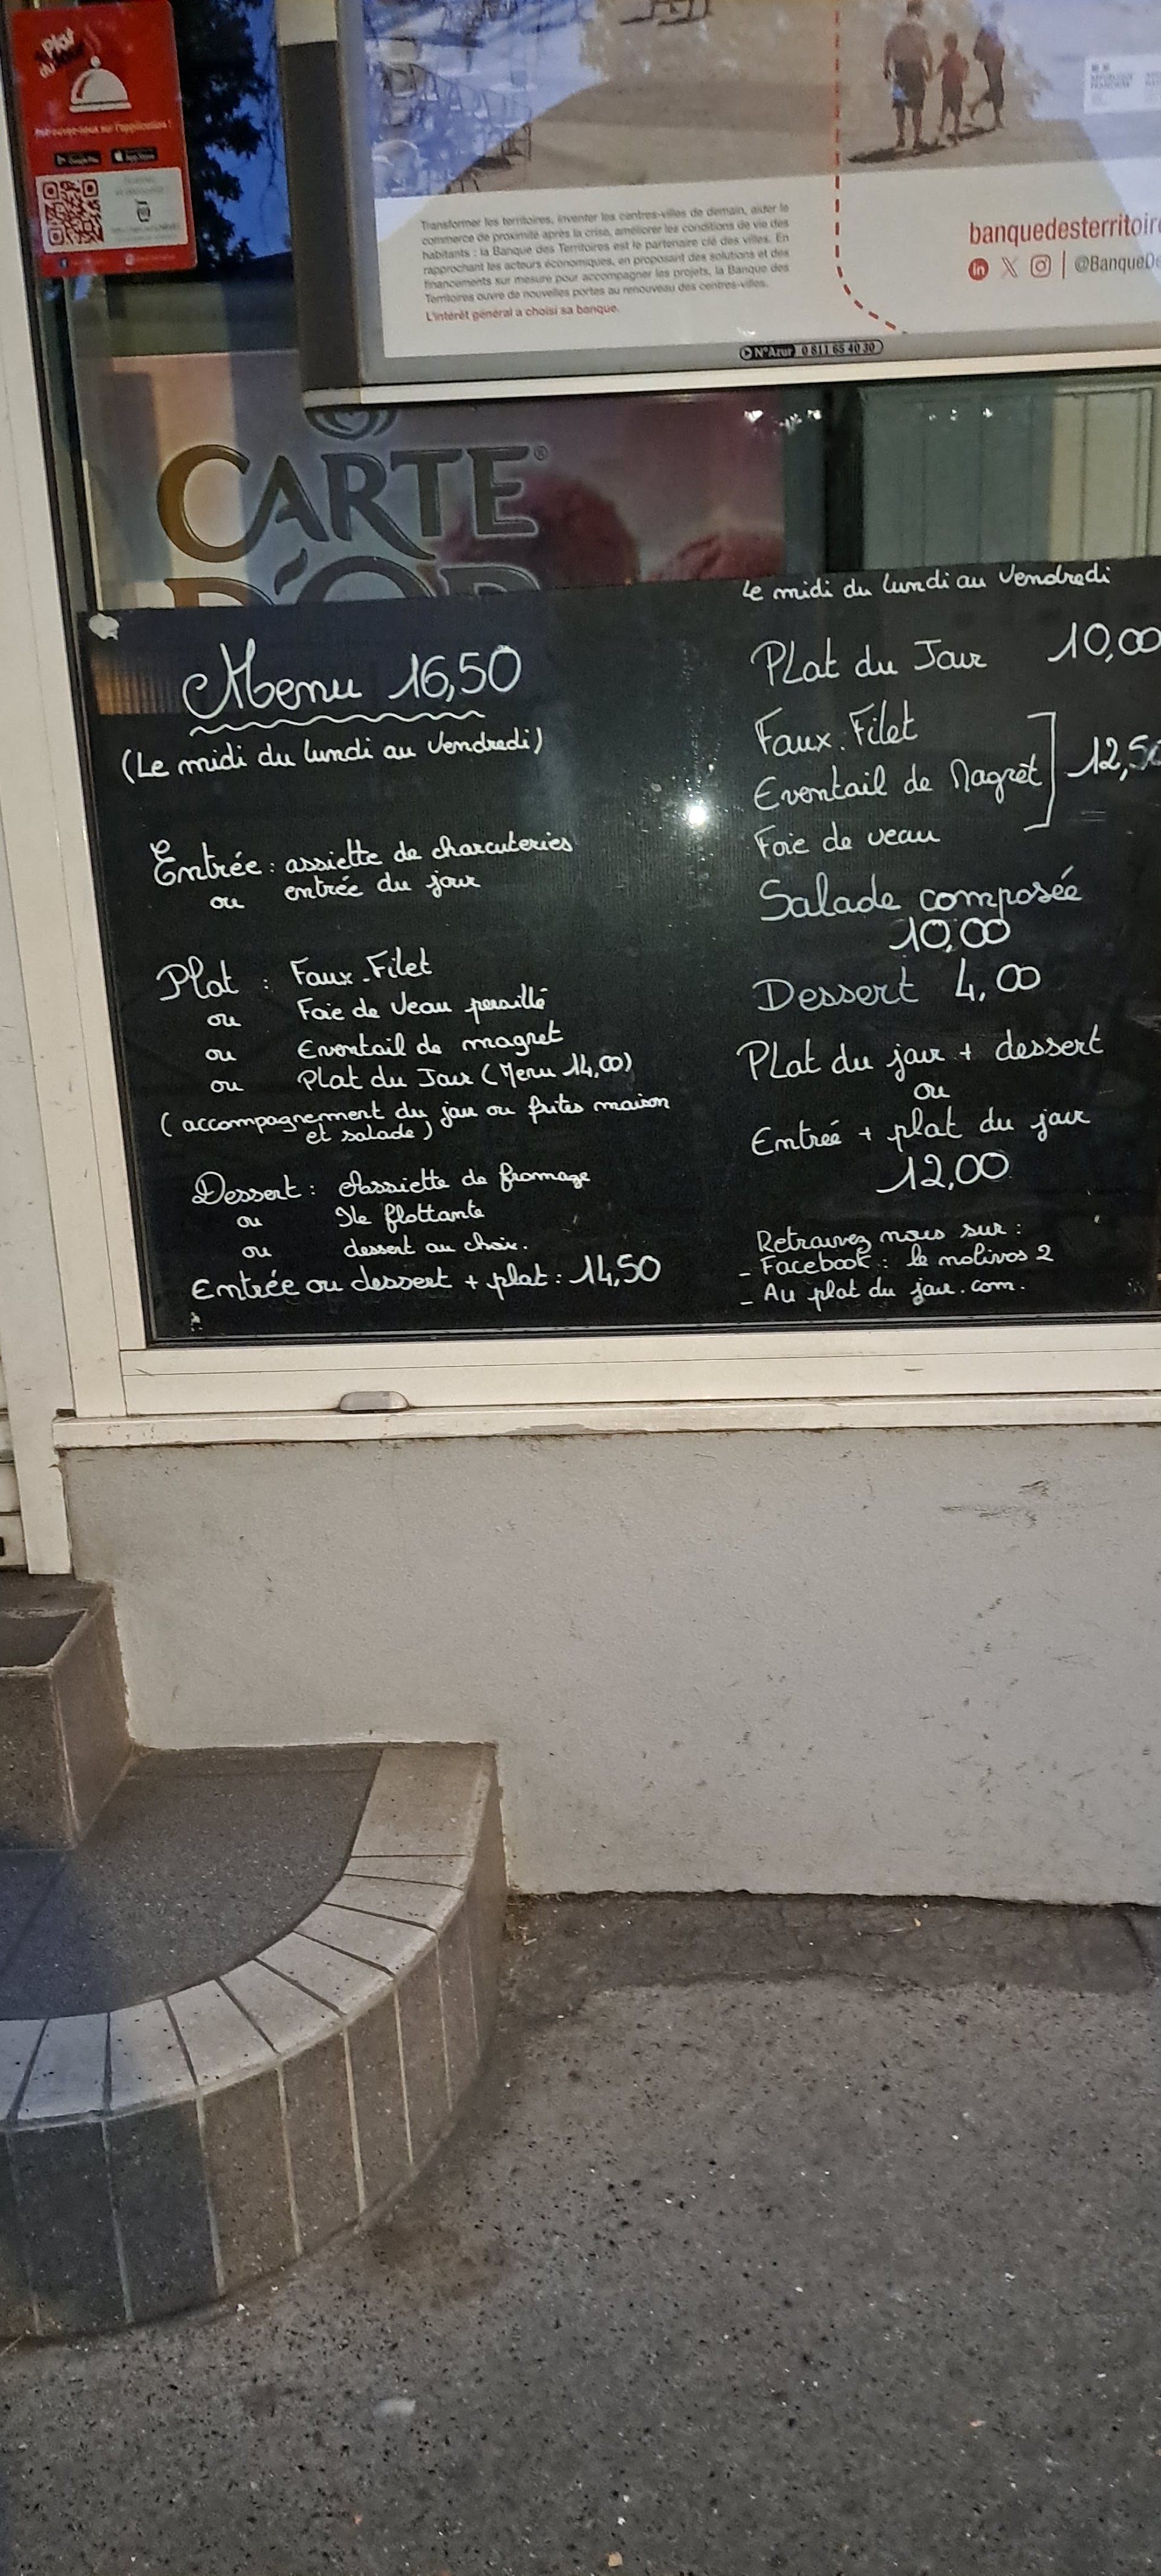 Plat
du Jour
Retrouvez-nous sur l'application !
Google Play
App Store
RÉPUBLIQUE
FRANÇAISE
Transformer les territoires, inventer les centres-villes de demain, aider le
commerce de proximité après la crise, améliorer les conditions de vie des
habitants : la Banque des Territoires est le partenaire clé des villes. En
rapprochant les acteurs économiques, en proposant des solutions et des
financements sur mesure pour accompagner les projets, la Banque des
Territoires ouvre de nouvelles portes au renouveau des centres-villes.
L'intérêt général a choisi sa banque.
banquedesterritoire
in X | @BanqueDe
N°Azur 0 811 65 40 30
CARTE®
D'OR
Menu 16,50
(Le midi du lundi au Vendredi)
Entrée : assiette de charcuteries
ou entrée du jour
Plat : Faux-Filet
ou Foie de Veau persillé
ou Eventail de magret
ou Plat du Jour (Menu 14,00)
(accompagnement du jour ou frites maison
et salade)
Dessert : Assiette de fromage
ou Ile flottante
ou dessert au choix.
Entrée ou dessert + plat : 14,50
le midi du lundi au Vendredi
Plat du Jour 10,00
Faux-Filet
Eventail de Magret 12,50
Foie de veau
Salade composée
10,00
Dessert 4,00
Plat du jour + dessert
ou
Entrée + plat du jour
12,00
Retrouvez nous sur :
- Facebook : le molivos 2
- Au plat du jour.com.